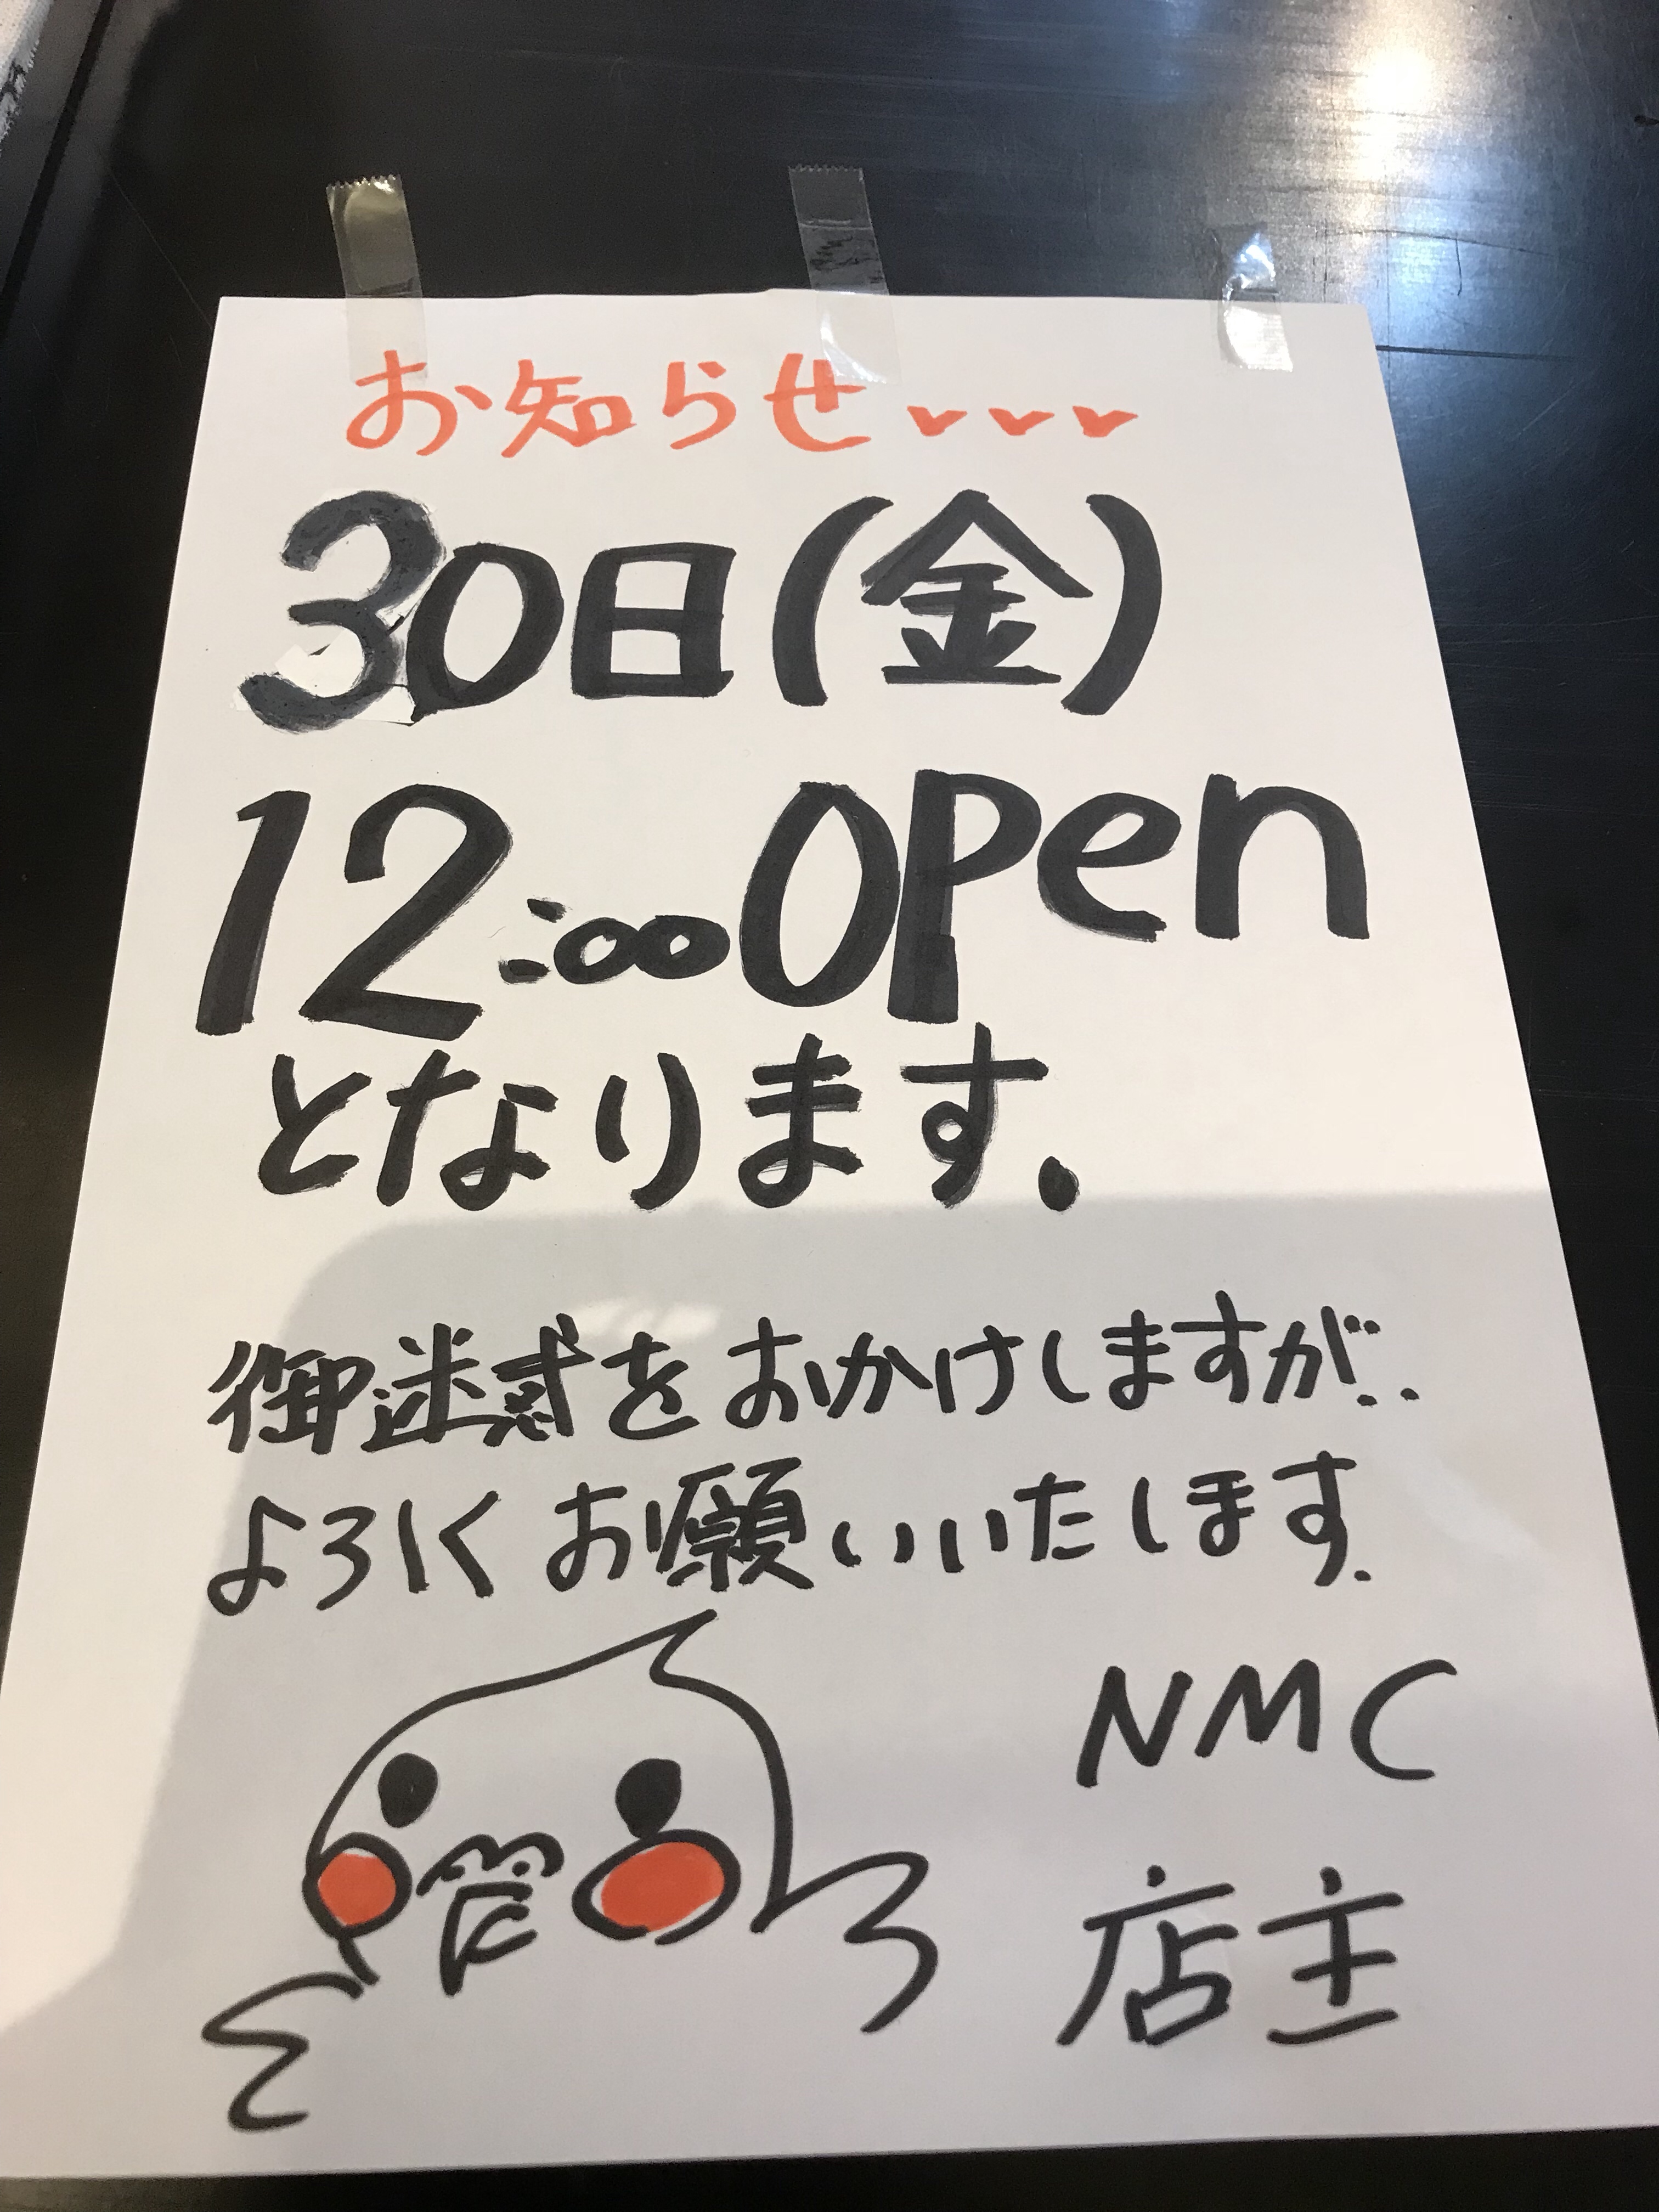 お知らせ
30日(金)
12:00 OPen
となります.
御迷惑をおかけしますが..
よろしくお願いいたします.
NMC
店主